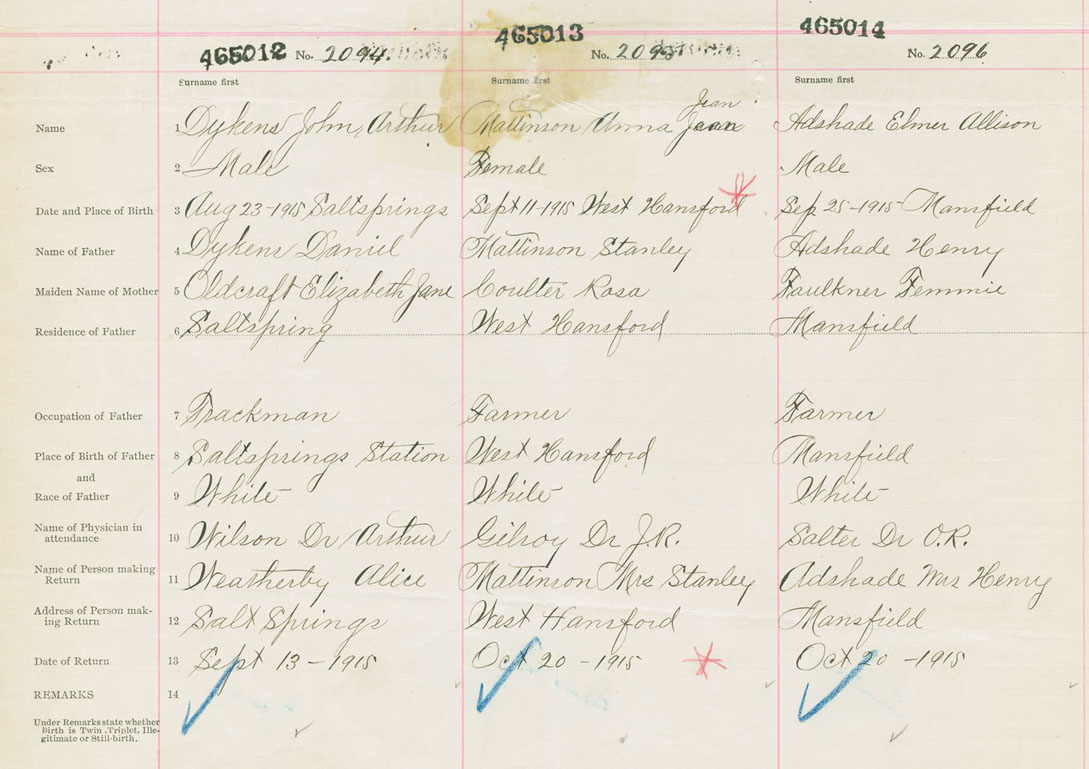 465012 No. 2094. 465013 No. 2095 465014 No. 2096
Surname first Surname first Surname first
Jean
Name 1 Dykens John, Arthur Mattinson Anna Jean Adshade Elmer Allison
Sex 2 Male Female Male
Date and Place of Birth 3 Aug 23-1915 Saltsprings Sept 11-1915 West Hansford Sep 25-1915 Mansfield
Name of Father 4 Dykens Daniel Mattinson Stanley Adshade Henry
Maiden Name of Mother 5 Oldcraft Elizabeth Jane Coulter Rosa Faulkner Femmie
Residence of Father 6 Saltspring West Hansford Mansfield
Occupation of Father 7 Trackman Farmer Farmer
Place of Birth of Father 8 Saltsprings Station West Hansford Mansfield
and
Race of Father 9 White White White
Name of Physician in
attendance 10 Wilson Dr Arthur Gilroy Dr J.R. Salter Dr O.R.
Name of Person making
Return 11 Weatherby Alice Mattinson Mrs Stanley Adshade Mrs Henry
Address of Person mak-
ing Return 12 Salt Springs West Hansford Mansfield
Date of Return 13 Sept 13-1915 Oct 20-1915 Oct 20-1915
REMARKS 14
Under Remarks state whether
Birth is Twin, Triplet, Ille-
gitimate or Still-birth.